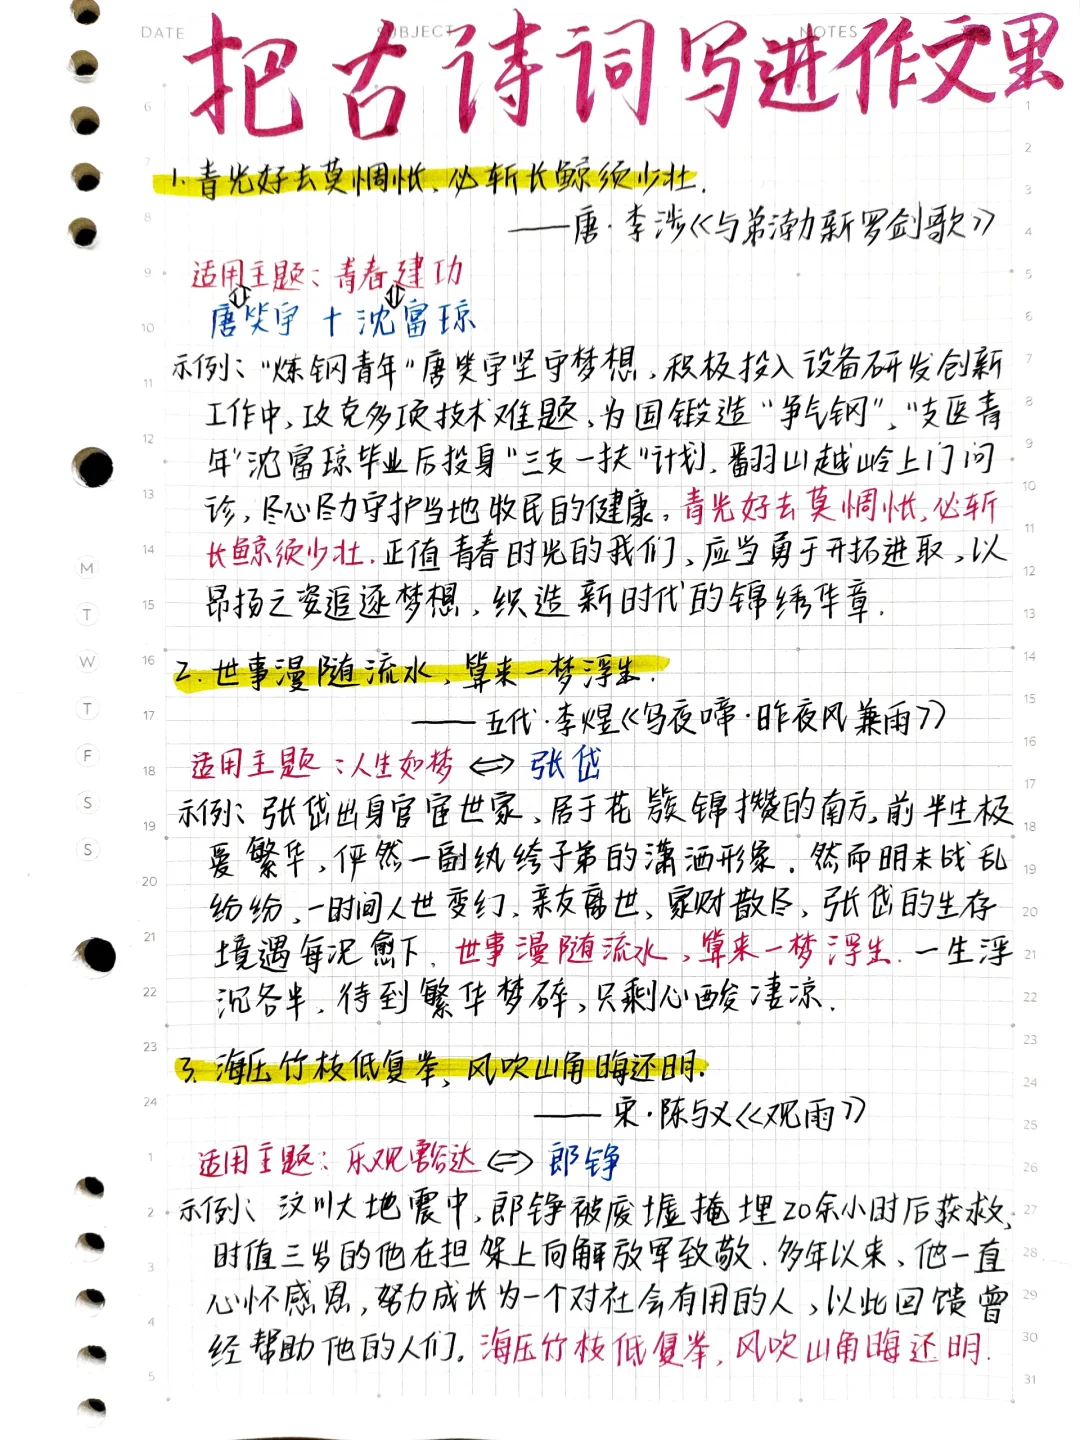 DATE SUBJECT NOTES
把古诗词写进作文里
1. 青光好去莫惆怅、必斩长鲸须少壮.
——唐·李涉《与弟渤新罗剑歌》
适用主题：青春建功
唐笑宇 + 沈富琼
示例："炼钢青年"唐笑宇坚守梦想，积极投入设备研发创新
工作中，攻克多项技术难题，为国锻造"争气钢"，"支医青
年"沈富琼毕业后投身"三支一扶"计划，翻山越岭上门问
诊，尽心尽力守护当地牧民的健康。青光好去莫惆怅，必斩
长鲸须少壮.正值青春时光的我们，应当勇于开拓进取，以
昂扬之姿追逐梦想，织造新时代的锦绣华章.
2. 世事漫随流水，算来一梦浮生.
——五代·李煜《乌夜啼·昨夜风兼雨》
适用主题：人生如梦 ⇔ 张岱
示例：张岱出身官宦世家，居于花簇锦攒的南方，前半生极
爱繁华，俨然一副纨绔子弟的潇洒形象.然而明末战乱
纷纷，一时间人世变幻，亲友离世，家财散尽，张岱的生存
境遇每况愈下.世事漫随流水，算来一梦浮生.一生浮
沉各半，待到繁华梦碎，只剩心酸凄凉.
3. 海压竹枝低复举，风吹山角晦还明.
——宋·陈与义《观雨》
适用主题：乐观豁达 ⇔ 郎铮
示例：汶川大地震中，郎铮被废墟掩埋20余小时后获救，
时值三岁的他在担架上向解放军致敬.多年以来，他一直
心怀感恩，努力成长为一个对社会有用的人，以此回馈曾
经帮助他的人们。海压竹枝低复举，风吹山角晦还明.